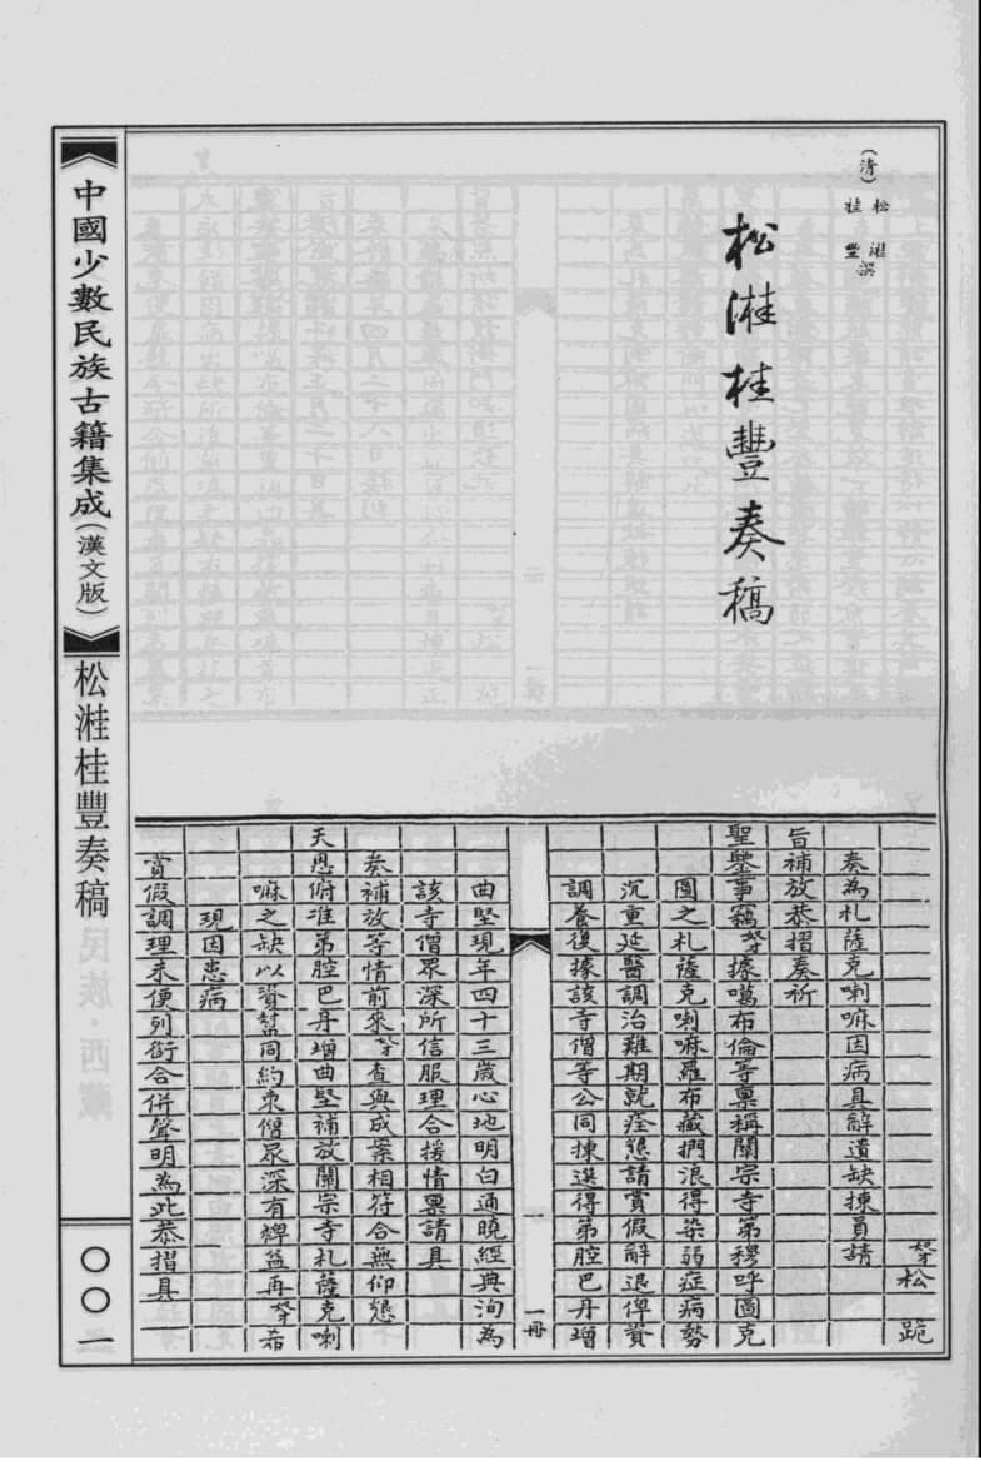 (清) 松溎
桂豐 撰
松溎桂豐奏稿
奴才松 跪
奏為札薩克喇嘛因病具辭遺缺揀員請
旨補放恭摺奏祈
聖鑒事竊奴才據噶布倫等稟稱闡宗寺第穆呼圖克
圖之札薩克喇嘛羅布藏捫浪得染弱症病勢
沉重延醫調治難期就痊懇請賞假辭退俾資
調養後據該寺僧等公同揀選得第腔巴丹增
一
一冊
曲堅現年四十三歲心地明白通曉經典洵為
該寺僧眾深所信服理合援情稟請具
奏補放等情前來奴才查與成案相符合無仰懇
天恩俯准第腔巴丹增曲堅補放闡宗寺札薩克喇
嘛之缺以資幫同約束僧眾深有裨益再奴才希
現因患病
賞假調理未便列銜合併聲明為此恭摺具
中國少數民族古籍集成(漢文版)
松溎桂豐奏稿
〇〇一